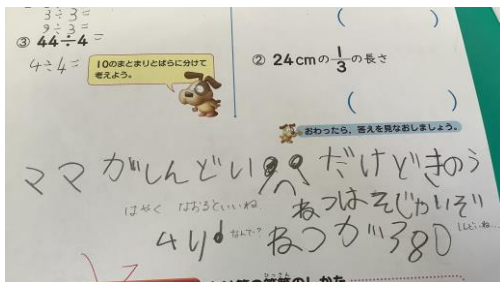 3÷3=
9÷3=
③ 44÷4=
4÷4=
10のまとまりとばらに分けて
考えよう。
( )
② 24cmの1/3の長さ
( )
おわったら、答えを見なおしましょう。
ママ がしんどい だけどきのう
はやく なおるといいね
ねつは
4り なんで?
ねつがい380
しんどいね…
ひっさん
筆算のしかた